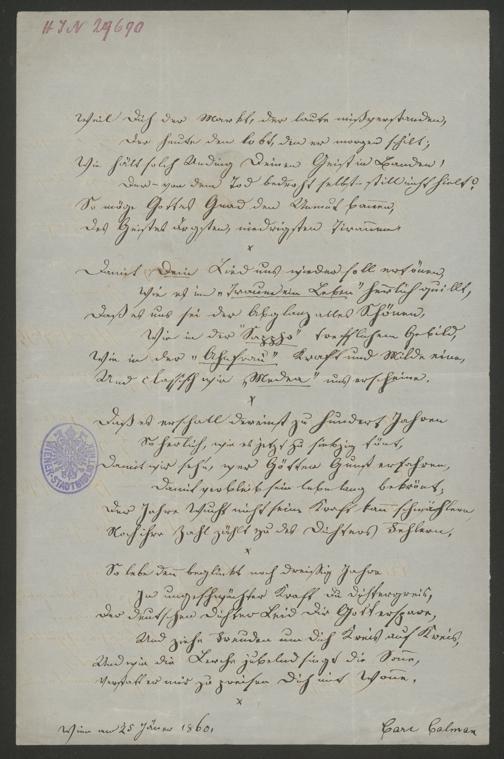 HIN 29690
Weil Dich der Markt, der laute mißverstanden,
Der heute den lobt, den er morgen schilt;
Wie hält solch Unding Deinen Geist in Banden!
Der – von dem Tod bedroht selbst – still nicht hielt?
So möge Gottes Gnad den Unmut bannen,
Des Geistes ärgsten, niedrigsten Tirannen.
x
Damit Dein Lied uns wieder soll ertönen,
Wie es im „Traum ein Leben" herrlich quillt,
Daß es uns sei der Abglanz alles Schönen,
Wie in der „Sappho" trefflichem Gebild,
Wie in der „Ahnfrau" Kraft und Milde eine,
Und classisch wie „Medea" uns erscheine.
x
Daß es erschall dereinst zu hundert Jahren
So herrlich, wie es jetzt zu siebzig tönt,
Damit wir sehn, wer Götter Gunst erfahren,
Damit verbleibt sein lebelang bekrönt;
Der Jahre Wucht nicht seine Kraft kann schmählern
Noch ihre Zahl zählt zu des Dichters Fehlern.
x
So lebe denn beglückt noch dreißig Jahre
In ungeschwächter Kraft du Dichtergreis,
Der deutschen Dichter Leid Dir Gott erspare,
Und ziehe Freunden um dich Kreis auf Kreis,
Und wie die Lerche jubelnd singt die Sonne,
Verstatt es mir zu preisen Dich mit Wonne.
x
Wien am 25 Jäner 1860.
Carl Calman